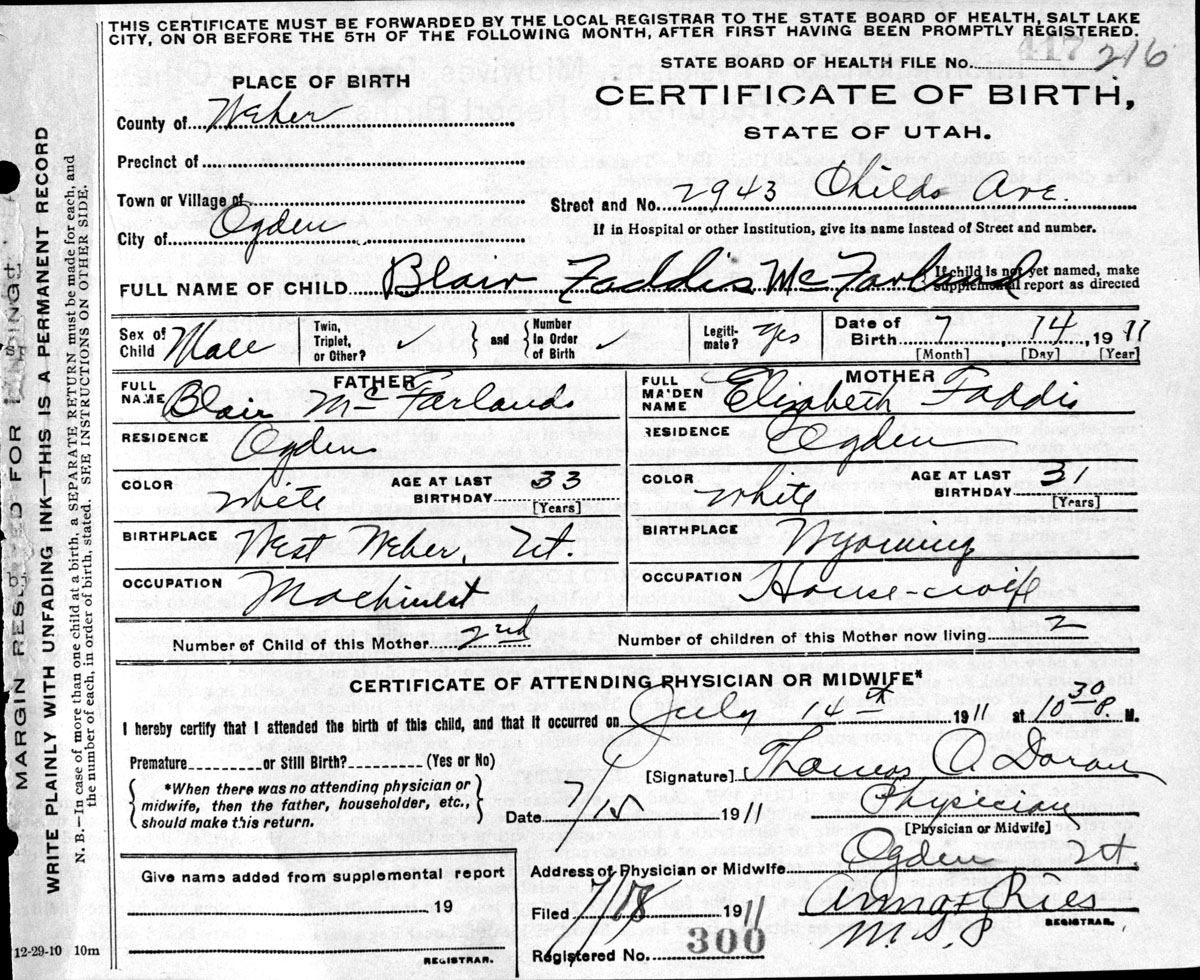 THIS CERTIFICATE MUST BE FORWARDED BY THE LOCAL REGISTRAR TO THE STATE BOARD OF HEALTH, SALT LAKE
CITY, ON OR BEFORE THE 5TH OF THE FOLLOWING MONTH, AFTER FIRST HAVING BEEN PROMPTLY REGISTERED.
417
STATE BOARD OF HEALTH FILE No. 216
PLACE OF BIRTH
CERTIFICATE OF BIRTH,
STATE OF UTAH.
County of Weber
Precinct of
Town or Village of
City of Ogden
Street and No. 2943 Childs Ave.
If in Hospital or other Institution, give its name instead of Street and number.
FULL NAME OF CHILD Blair Faddis McFarland
If child is not yet named, make
supplemental report as directed
Sex of Child Male
Twin, Triplet, or Other? ✓ and Number In Order of Birth ✓
Legiti- mate? Yes
Date of Birth 7, 14, 1911
[Month] [Day] [Year]
FATHER
FULL NAME Blair McFarland
RESIDENCE Ogden
COLOR White AGE AT LAST BIRTHDAY 33 [Years]
BIRTHPLACE West Weber, Ut.
OCCUPATION Machinist
MOTHER
FULL MAIDEN NAME Elizabeth Faddis
RESIDENCE Ogden
COLOR White AGE AT LAST BIRTHDAY 31 [Years]
BIRTHPLACE Wyoming
OCCUPATION House-wife
Number of Child of this Mother 2nd Number of children of this Mother now living 2
CERTIFICATE OF ATTENDING PHYSICIAN OR MIDWIFE*
I hereby certify that I attended the birth of this child, and that it occurred on July 14 1911 at 10 30 P. M.
Premature or Still Birth? (Yes or No)
[Signature] Thomas A. Doran
*When there was no attending physician or
midwife, then the father, householder, etc.,
should make this return.
Date 7/15 1911
Physician
[Physician or Midwife]
Give name added from supplemental report
19
REGISTRAR.
Address of Physician or Midwife Ogden Ut.
Filed 7/18 1911
Anna F Ries
REGISTRAR.
Registered No. 300
12-29-10 10m
MARGIN RESERVED FOR BINDING
WRITE PLAINLY WITH UNFADING INK—THIS IS A PERMANENT RECORD
N. B.—In case of more than one child at a birth, a SEPARATE RETURN must be made for each, and
the number of each, in order of birth, stated. SEE INSTRUCTIONS ON OTHER SIDE.